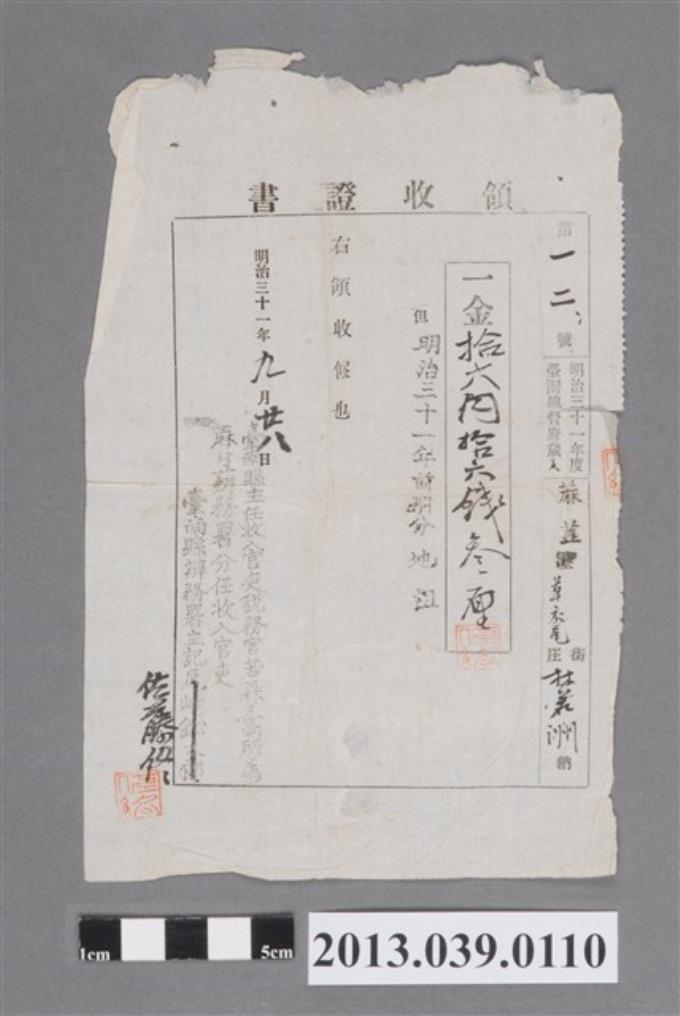 領收證書
第一二號
明治三十一年度
臺灣總督府歲入
蔴荳
草尾
街
庄
林若洲納
一金拾六円拾六錢叁厘
但明治三十一年前期分地租
右領收候也
明治三十一年九月廿八日
臺南縣主任收入官吏稅務官若
蔴荳辨務署分任收入官吏
臺南縣辨務署主記
佐藤
1cm
5cm
2013.039.0110